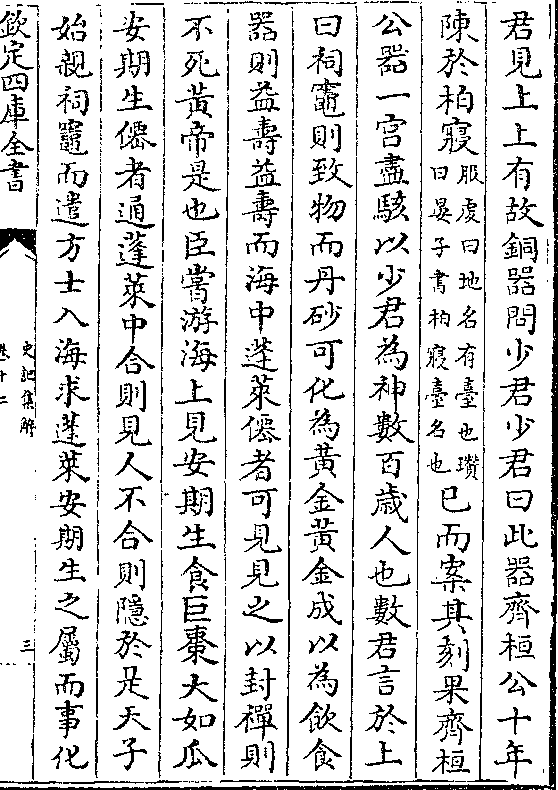 君見上上有故銅器問少君少君曰此器齊桓公十年
陳於柏寢服虔曰地名有臺也瓚曰晏子書柏寢臺名也已而案其刻果齊桓
公器一宫盡駭以少君為神數百歳人也數君言於上
曰祠竈則致物而丹砂可化為黃金黃金成以為飲食
器則益壽益壽而海中蓬萊僊者可見見之以封禪則
不死黃帝是也臣嘗游海上見安期生食巨棗大如瓜
安期生僊者通蓬萊中合則見人不合則隱於是天子
始親祠竈而遣方士入海求蓬萊安期生之屬而事化
欽定四庫全書
史記集解
卷十二
三